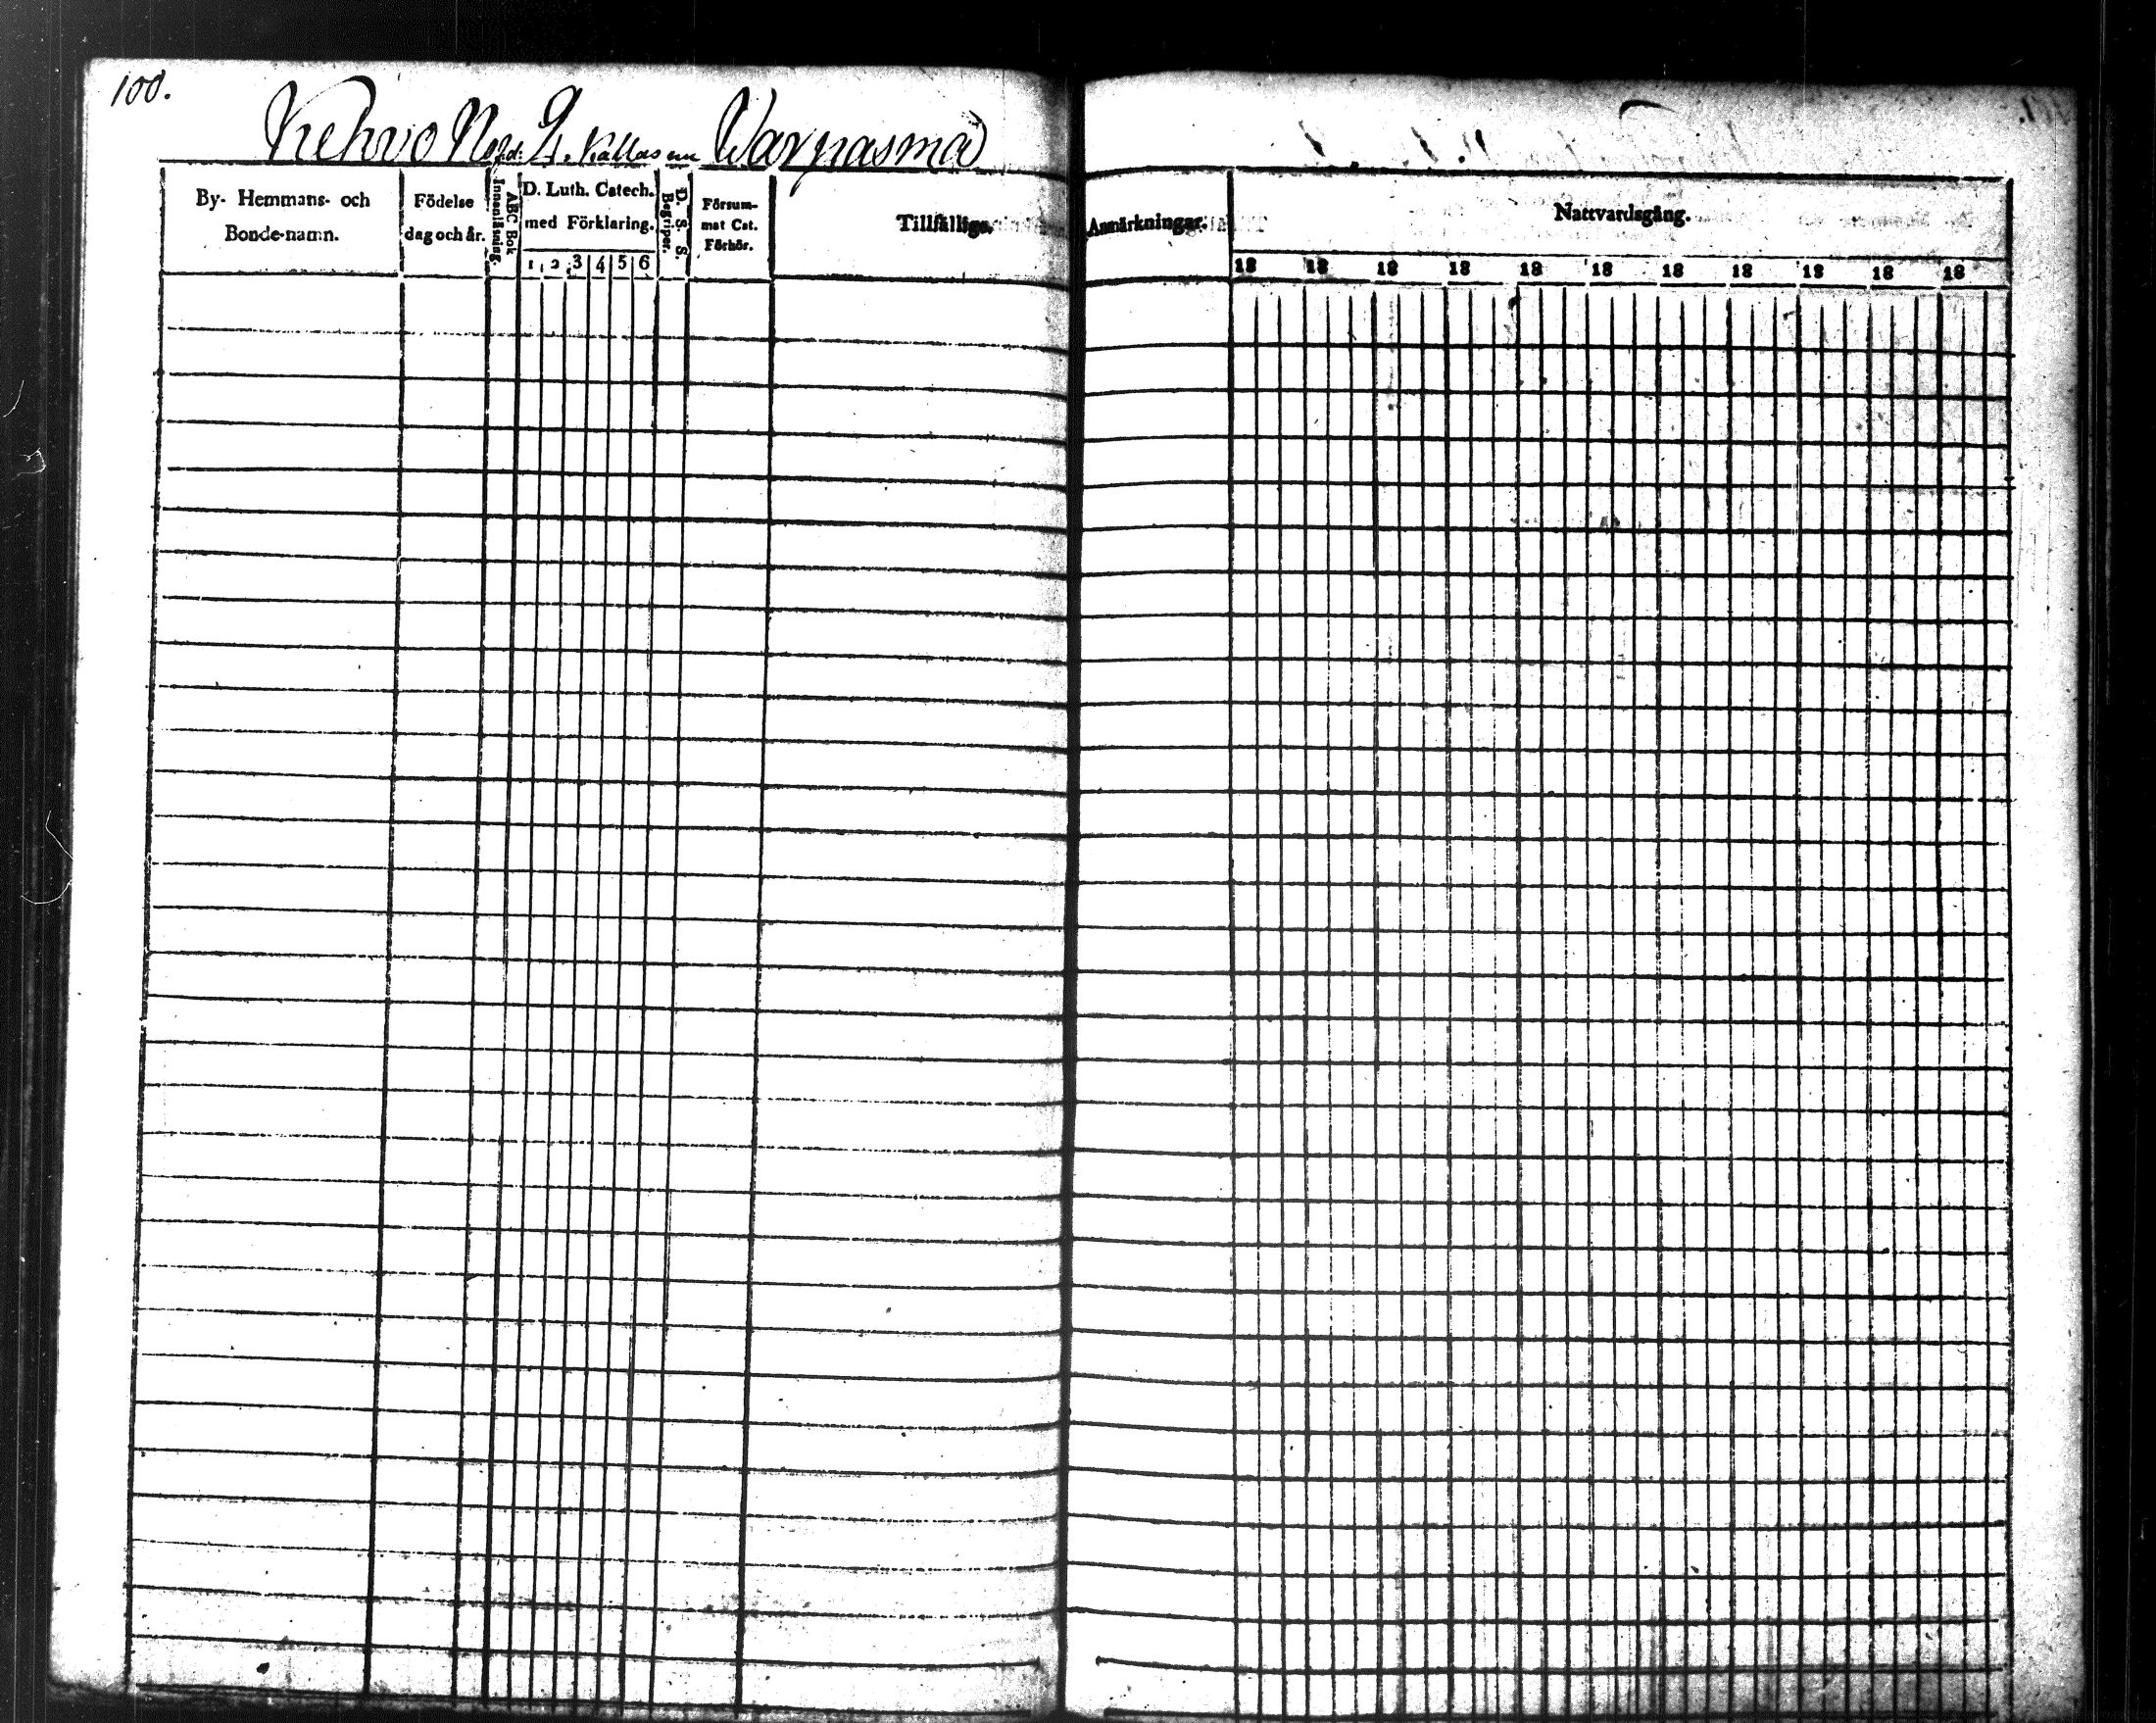 100.
Kehvo No 2. kallas nu Warpasmä
By- Hemmans- och
Bonde-namn.
Födelse
dag och år.
ABC Bok
Innanläsning.
D. Luth. Catech.
med Förklaring.
1 2 3 4 5 6
D. S. S.
Begriper.
Försum-
mat Cat.
Förhör.
Tillfällige
Anmärkningar.
Nattvardsgång.
18 18 18 18 18 18 18 18 18 18 18